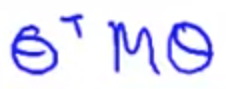 θᵀMθ